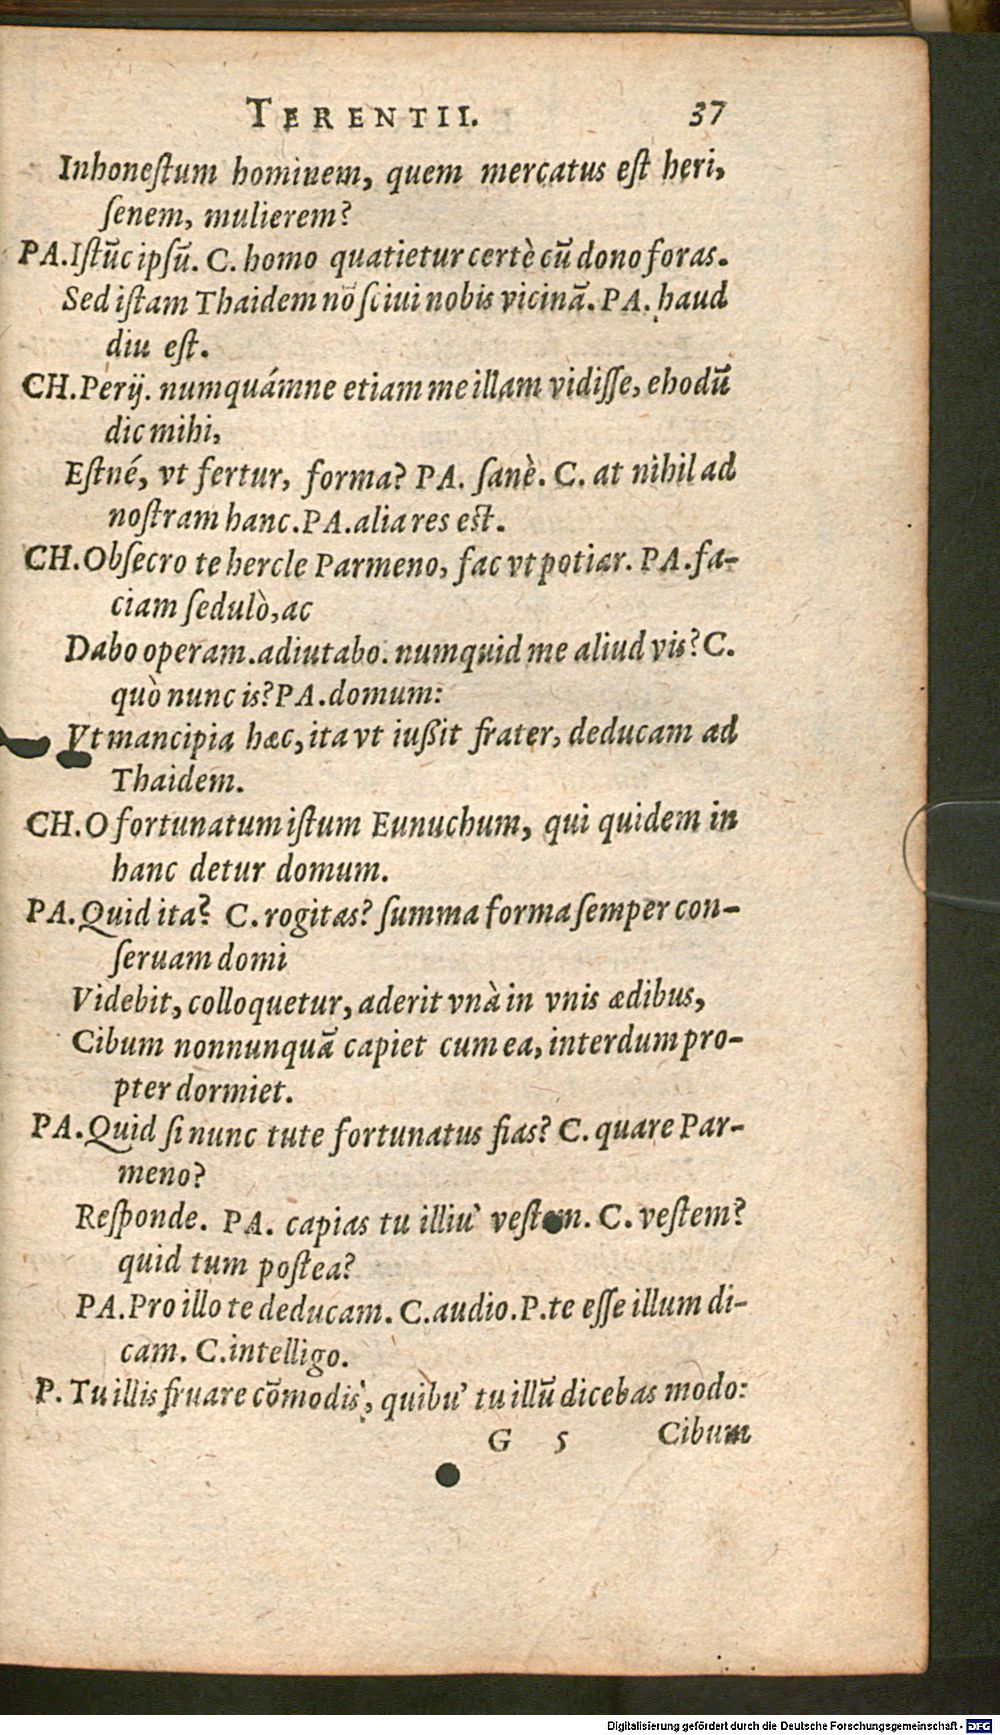 TERENTII. 37
Inhoneſtum hominem, quem mercatus eſt heri,
ſenem, mulierem?
PA. Iſtūc ipſū. C. homo quatietur certè cū dono foras.
Sed iſtam Thaidem nō ſciui nobis vicinā. PA. haud
diu eſt.
CH. Perij. numquámne etiam me illam vidiſſe, ehodū
dic mihi,
Eſtné, vt fertur, forma? PA. ſanè. C. at nihil ad
noſtram hanc. PA. alia res eſt.
CH. Obſecro te hercle Parmeno, fac vt potiar. PA. fa-
ciam ſedulò, ac
Dabo operam. adiutabo. numquid me aliud vis? C.
quò nunc is? PA. domum:
Vt mancipia hæc, ita vt iußit frater, deducam ad
Thaidem.
CH. O fortunatum iſtum Eunuchum, qui quidem in
hanc detur domum.
PA. Quid ita? C. rogitas? ſumma forma ſemper con-
ſeruam domi
Videbit, colloquetur, aderit vnà in vnis ædibus,
Cibum nonnunquā capiet cum ea, interdum pro-
pter dormiet.
PA. Quid ſi nunc tute fortunatus fias? C. quare Par-
meno?
Reſponde. PA. capias tu illiu' veſtem. C. veſtem?
quid tum poſtea?
PA. Pro illo te deducam. C. audio. P. te eſſe illum di-
cam. C. intelligo.
P. Tu illis fruare cōmodis', quibu' tu illū dicebas modo:
G 5 Cibum
Digitalisierung gefördert durch die Deutsche Forschungsgemeinschaft - DFG